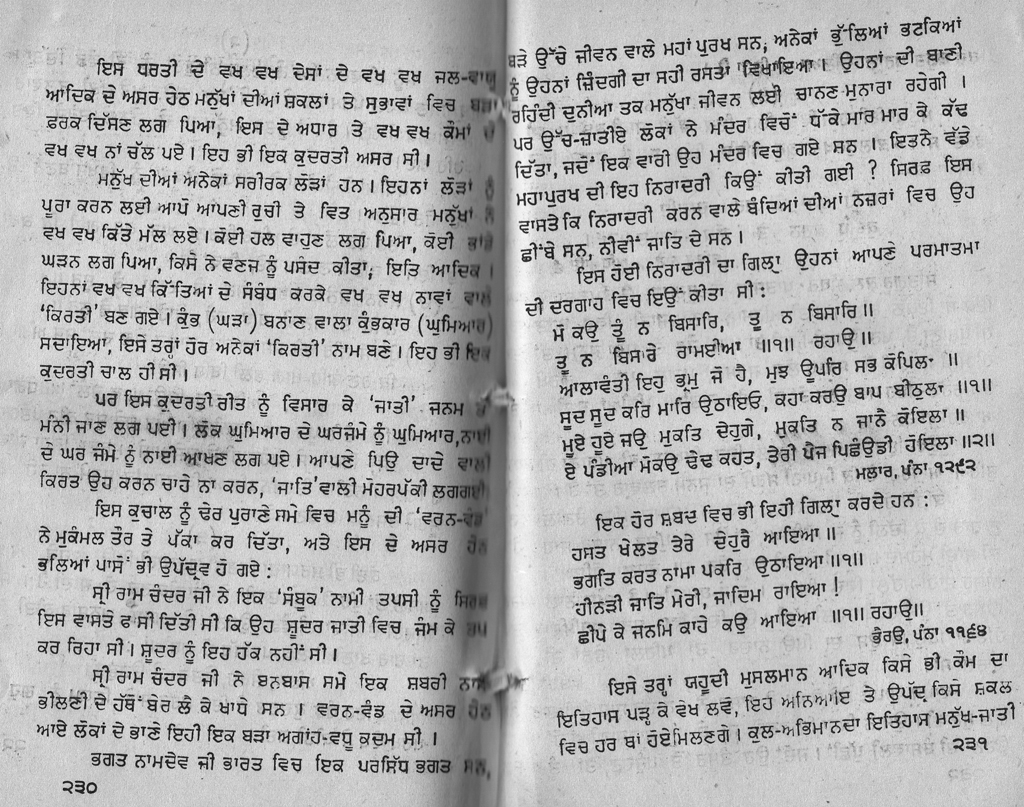 ਇਸ ਧਰਤੀ ਦੇ ਵਖ ਵਖ ਦੇਸਾਂ ਦੇ ਵਖ ਵਖ ਜਲ-ਵਾਯੂ
ਆਦਿਕ ਦੇ ਅਸਰ ਹੇਠ ਮਨੁੱਖਾਂ ਦੀਆਂ ਸ਼ਕਲਾਂ ਤੇ ਸੁਭਾਵਾਂ ਵਿਚ ਬੜਾ
ਫ਼ਰਕ ਦਿੱਸਣ ਲਗ ਪਿਆ, ਇਸ ਦੇ ਅਧਾਰ ਤੇ ਵਖ ਵਖ ਕੌਮਾਂ ਦੇ
ਵਖ ਵਖ ਨਾਂ ਚੱਲ ਪਏ। ਇਹ ਭੀ ਇਕ ਕੁਦਰਤੀ ਅਸਰ ਸੀ।
ਮਨੁੱਖ ਦੀਆਂ ਅਨੇਕਾਂ ਸਰੀਰਕ ਲੋੜਾਂ ਹਨ। ਇਹਨਾਂ ਲੋੜਾਂ ਨੂੰ
ਪੂਰਾ ਕਰਨ ਲਈ ਆਪੋ ਆਪਣੀ ਰੁਚੀ ਤੇ ਵਿਤ ਅਨੁਸਾਰ ਮਨੁੱਖਾਂ ਨੇ
ਵਖ ਵਖ ਕਿੱਤੇ ਮੱਲ ਲਏ। ਕੋਈ ਹਲ ਵਾਹੁਣ ਲਗ ਪਿਆ, ਕੋਈ ਭਾਂਡੇ
ਘੜਨ ਲਗ ਪਿਆ, ਕਿਸੇ ਨੇ ਵਣਜ ਨੂੰ ਪਸੰਦ ਕੀਤਾ, ਇਤਿ ਆਦਿਕ।
ਇਹਨਾਂ ਵਖ ਵਖ ਕਿੱਤਿਆਂ ਦੇ ਸੰਬੰਧ ਕਰਕੇ ਵਖ ਵਖ ਨਾਵਾਂ ਵਾਲੇ
‘ਕਿਰਤੀ’ ਬਣ ਗਏ। ਕੁੰਭ (ਘੜਾ) ਬਨਾਣ ਵਾਲਾ ਕੁੰਭਕਾਰ (ਘੁਮਿਆਰ)
ਸਦਾਇਆ, ਇਸੇ ਤਰ੍ਹਾਂ ਹੋਰ ਅਨੇਕਾਂ ‘ਕਿਰਤੀ’ ਨਾਮ ਬਣੇ। ਇਹ ਭੀ ਇਕ
ਕੁਦਰਤੀ ਚਾਲ ਹੀ ਸੀ।
ਪਰ ਇਸ ਕੁਦਰਤੀ ਰੀਤ ਨੂੰ ਵਿਸਾਰ ਕੇ ‘ਜਾਤੀ’ ਜਨਮ ਤੋਂ
ਮੰਨੀ ਜਾਣ ਲਗ ਪਈ। ਲੋਕ ਘੁਮਿਆਰ ਦੇ ਘਰਜੰਮੇ ਨੂੰ ਘੁਮਿਆਰ, ਨਾਈ
ਦੇ ਘਰ ਜੰਮੇ ਨੂੰ ਨਾਈ ਆਖਣ ਲਗ ਪਏ। ਆਪਣੇ ਪਿਉ ਦਾਦੇ ਵਾਲੀ
ਕਿਰਤ ਉਹ ਕਰਨ ਚਾਹੇ ਨਾ ਕਰਨ, ‘ਜਾਤਿ’ਵਾਲੀ ਮੋਹਰਪੱਕੀ ਲਗਗਈ
ਇਸ ਕੁਚਾਲ ਨੂੰ ਢੇਰ ਪੁਰਾਣੇ ਸਮੇ ਵਿਚ ਮਨੂੰ ਦੀ ‘ਵਰਨ-ਵੰਡ’
ਨੇ ਮੁਕੰਮਲ ਤੌਰ ਤੇ ਪੱਕਾ ਕਰ ਦਿੱਤਾ, ਅਤੇ ਇਸ ਦੇ ਅਸਰ ਹੇਠ
ਭਲਿਆਂ ਪਾਸੋਂ ਭੀ ਉਪੱਦ੍ਰਵ ਹੋ ਗਏ :
ਸ੍ਰੀ ਰਾਮ ਚੰਦਰ ਜੀ ਨੇ ਇਕ ‘ਸੰਬੂਕ’ ਨਾਮੀ ਤਪਸੀ ਨੂੰ ਸਿਰਫ਼
ਇਸ ਵਾਸਤੇ ਫਾਂਸੀ ਦਿੱਤੀ ਸੀ ਕਿ ਉਹ ਸ਼ੂਦਰ ਜਾਤੀ ਵਿਚ ਜੰਮ ਕੇ ਤਪ
ਕਰ ਰਿਹਾ ਸੀ। ਸ਼ੂਦਰ ਨੂੰ ਇਹ ਹੱਕ ਨਹੀਂ ਸੀ।
ਸ੍ਰੀ ਰਾਮ ਚੰਦਰ ਜੀ ਨੇ ਬਨਬਾਸ ਸਮੇ ਇਕ ਸ਼ਬਰੀ ਨਾਮ
ਭੀਲਣੀ ਦੇ ਹੱਥੋਂ ਬੇਰ ਲੈ ਕੇ ਖਾਧੇ ਸਨ। ਵਰਨ-ਵੰਡ ਦੇ ਅਸਰ ਹੇਠ
ਆਏ ਲੋਕਾਂ ਦੇ ਭਾਣੇ ਇਹੀ ਇਕ ਬੜਾ ਅਗਾਂਹ-ਵਧੂ ਕਦਮ ਸੀ।
ਭਗਤ ਨਾਮਦੇਵ ਜੀ ਭਾਰਤ ਵਿਚ ਇਕ ਪਰਸਿੱਧ ਭਗਤ ਸਨ,
੨੩੦
ਬੜੇ ਉੱਚੇ ਜੀਵਨ ਵਾਲੇ ਮਹਾਂ ਪੁਰਖ ਸਨ, ਅਨੇਕਾਂ ਭੁੱਲਿਆਂ ਭਟਕਿਆਂ
ਨੂੰ ਉਹਨਾਂ ਜ਼ਿੰਦਗੀ ਦਾ ਸਹੀ ਰਸਤਾ ਵਿਖਾਇਆ। ਉਹਨਾਂ ਦੀ ਬਾਣੀ
ਰਹਿੰਦੀ ਦੁਨੀਆ ਤਕ ਮਨੁੱਖਾ ਜੀਵਨ ਲਈ ਚਾਨਣ-ਮੁਨਾਰਾ ਰਹੇਗੀ।
ਪਰ ਉੱਚ-ਜ਼ਾਤੀਏ ਲੋਕਾਂ ਨੇ ਮੰਦਰ ਵਿਚੋਂ ਧੱਕੇ ਮਾਰ ਮਾਰ ਕੇ ਕੱਢ
ਦਿੱਤਾ, ਜਦੋਂ ਇਕ ਵਾਰੀ ਉਹ ਮੰਦਰ ਵਿਚ ਗਏ ਸਨ। ਇਤਨੇ ਵੱਡੇ
ਮਹਾਪੁਰਖ ਦੀ ਇਹ ਨਿਰਾਦਰੀ ਕਿਉਂ ਕੀਤੀ ਗਈ ? ਸਿਰਫ਼ ਇਸ
ਵਾਸਤੇ ਕਿ ਨਿਰਾਦਰੀ ਕਰਨ ਵਾਲੇ ਬੰਦਿਆਂ ਦੀਆਂ ਨਜ਼ਰਾਂ ਵਿਚ ਉਹ
ਛੀਂਬੇ ਸਨ, ਨੀਵੀਂ ਜਾਤਿ ਦੇ ਸਨ।
ਇਸ ਹੋਈ ਨਿਰਾਦਰੀ ਦਾ ਗਿਲ੍ਹਾ ਉਹਨਾਂ ਆਪਣੇ ਪਰਮਾਤਮਾ
ਦੀ ਦਰਗਾਹ ਵਿਚ ਇਉਂ ਕੀਤਾ ਸੀ :
ਮੋ ਕਉ ਤੂੰ ਨ ਬਿਸਾਰਿ, ਤੂ ਨ ਬਿਸਾਰਿ॥
ਤੂ ਨ ਬਿਸਾਰੇ ਰਾਮਈਆ ॥੧॥ ਰਹਾਉ॥
ਆਲਾਵੰਤੀ ਇਹੁ ਭ੍ਰਮੁ ਜੋ ਹੈ, ਮੁਝ ਊਪਰਿ ਸਭ ਕੋਪਿਲਾ ॥
ਸੂਦ ਸੂਦ ਕਰਿ ਮਾਰਿ ਉਠਾਇਓ, ਕਹਾ ਕਰਉ ਬਾਪ ਬੀਠੁਲਾ ॥੧॥
ਮੂਏ ਹੂਏ ਜਉ ਮੁਕਤਿ ਦੇਹੁਗੇ, ਮੁਕਤਿ ਨ ਜਾਨੈ ਕੋਇਲਾ॥
ਏ ਪੰਡੀਆ ਮੋਕਉ ਢੇਢ ਕਹਤ, ਤੇਰੀ ਪੈਜ ਪਿਛੰਉਡੀ ਹੋਇਲਾ॥੨॥
ਮਲਾਰ, ਪੰਨਾ ੧੨੯੨
ਇਕ ਹੋਰ ਸ਼ਬਦ ਵਿਚ ਭੀ ਇਹੀ ਗਿਲ੍ਹਾ ਕਰਦੇ ਹਨ :
ਹਸਤ ਖੇਲਤ ਤੇਰੇ ਦੇਹੁਰੈ ਆਇਆ॥
ਭਗਤਿ ਕਰਤ ਨਾਮਾ ਪਕਰਿ ਉਠਾਇਆ॥੧॥
ਹੀਨੜੀ ਜਾਤਿ ਮੇਰੀ, ਜਾਦਿਮ ਰਾਇਆ !
ਛੀਪੇ ਕੇ ਜਨਮਿ ਕਾਹੇ ਕਉ ਆਇਆ ॥੧॥ ਰਹਾਉ॥
ਭੈਰਉ, ਪੰਨਾ ੧੧੬੪
ਇਸੇ ਤਰ੍ਹਾਂ ਯਹੂਦੀ ਮੁਸਲਮਾਨ ਆਦਿਕ ਕਿਸੇ ਭੀ ਕੌਮ ਦਾ
ਇਤਿਹਾਸ ਪੜ੍ਹ ਕੇ ਵੇਖ ਲਵੋ, ਇਹੋ ਅਨਿਆਂਇ ਤੇ ਉਪੱਦ੍ਰ ਕਿਸੇ ਸ਼ਕਲ
ਵਿਚ ਹਰ ਥਾਂ ਹੋਏਮਿਲਣਗੇ। ਕੁਲ-ਅਭਿਮਾਨਦਾ ਇਤਿਹਾਸ ਮਨੁੱਖ-ਜਾਤੀ
੨੩੧